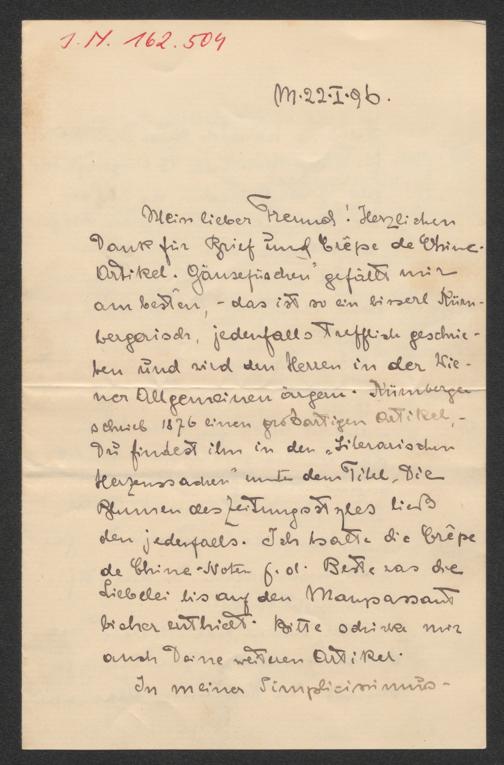 I.N. 162.504
M. 22.I.96.
Mein lieber Freund! Herzlichen
Dank für Brief und Crêpe de Chine-
Artikel. Gänsefüschen" gefällt mir
am besten, - das ist so ein bisserl Kürn-
bergerisch, jedenfalls trefflich geschrie-
ben und wird den Herren in der Wie-
ner Allgemeinen ärgern. Kürnberger
schrieb 1876 einen großartigen Artikel, -
Du findest ihn in den "Literarischen
Herzenssachen" unter dem Titel, Die
Blumen des Zeitungsstyles ließ
den jedenfalls. Ich halte die Crêpe
de Chine-Noten f. d. Beste was die
Liebelei bis auf den Maupassant
bisher enthielt. Bitte schicke mir
auch Deine weiteren Artikel.
In meiner Simplicissimus-